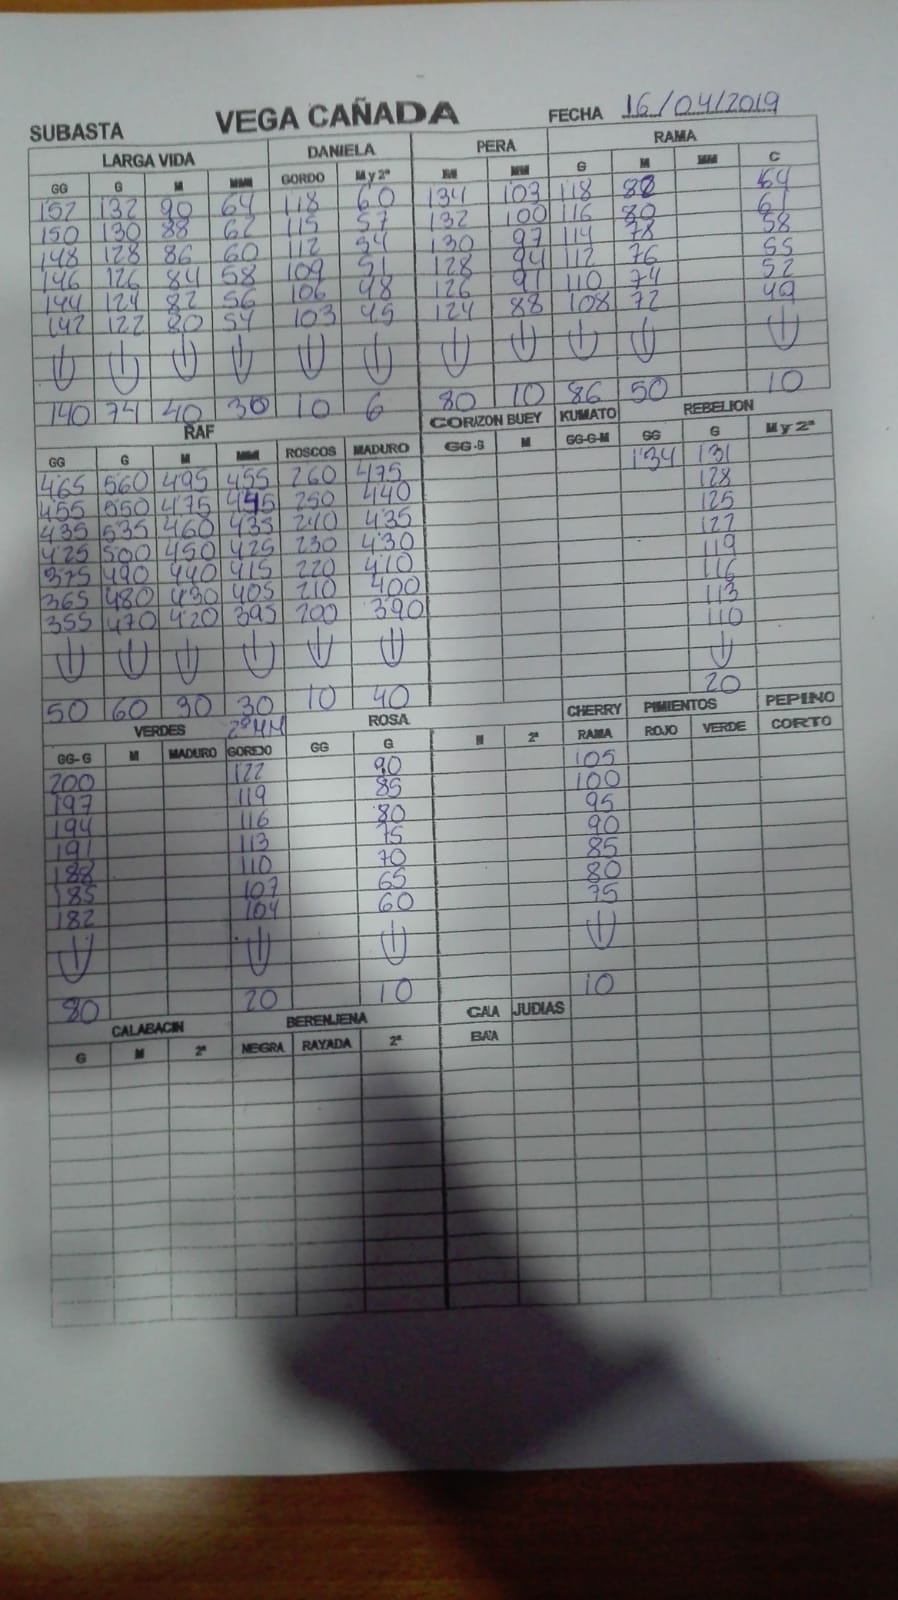 SUBASTA VEGA CAÑADA FECHA 16/04/2019
LARGA VIDA DANIELA PERA RAMA
GG G M MM GORDO M y 2ª M MM G M MM C
152 132 90 64 118 60 134 103 118 82 64
150 130 88 62 115 57 132 100 116 80 61
148 128 86 60 112 54 130 97 114 78 58
146 126 84 58 109 51 128 94 112 76 55
144 124 82 56 106 48 126 91 110 74 52
142 122 80 54 103 45 124 88 108 72 49
140 74 40 30 10 6 80 10 86 50 10
RAF CORIZON BUEY KUMATO REBELION
GG G M MM ROSCOS MADURO GG-G M GG-G-M GG G M y 2ª
465 560 495 455 260 475 134 131
455 550 475 445 250 440 128
435 535 460 435 240 435 125
425 500 450 425 230 430 122
375 490 440 415 220 410 119
365 480 430 405 210 400 116
355 470 420 395 200 390 113
110
50 60 30 30 10 40 20
VERDES 2ª MM ROSA CHERRY PIMIENTOS PEPINO
GG-G M MADURO GORDO GG G M 2ª RAMA ROJO VERDE CORTO
200 122 90 105
197 119 85 100
194 116 80 95
191 113 75 90
188 110 70 85
185 107 65 80
182 104 60 75
80 20 10 10
CALABACIN BERENJENA CAIA JUDIAS
G M 2ª NEGRA RAYADA 2ª BAIA